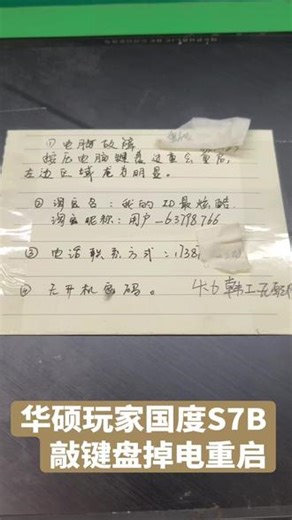 ① 电脑故障
按压电脑键盘这重会重启,
左边区域尤为明显。
② 淘宝名:我的ID最炫酷.
淘宝昵称:用户_63798766
③ 电话联系方式:1738
④ 无开机密码。
华硕玩家国度S7B
敲键盘掉电重启